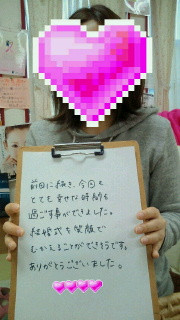 前回に続き、今回も
とても幸せな時間を
過ごす事ができました。
結婚式を笑顔で
むかえることができそうです。
ありがとうございました。